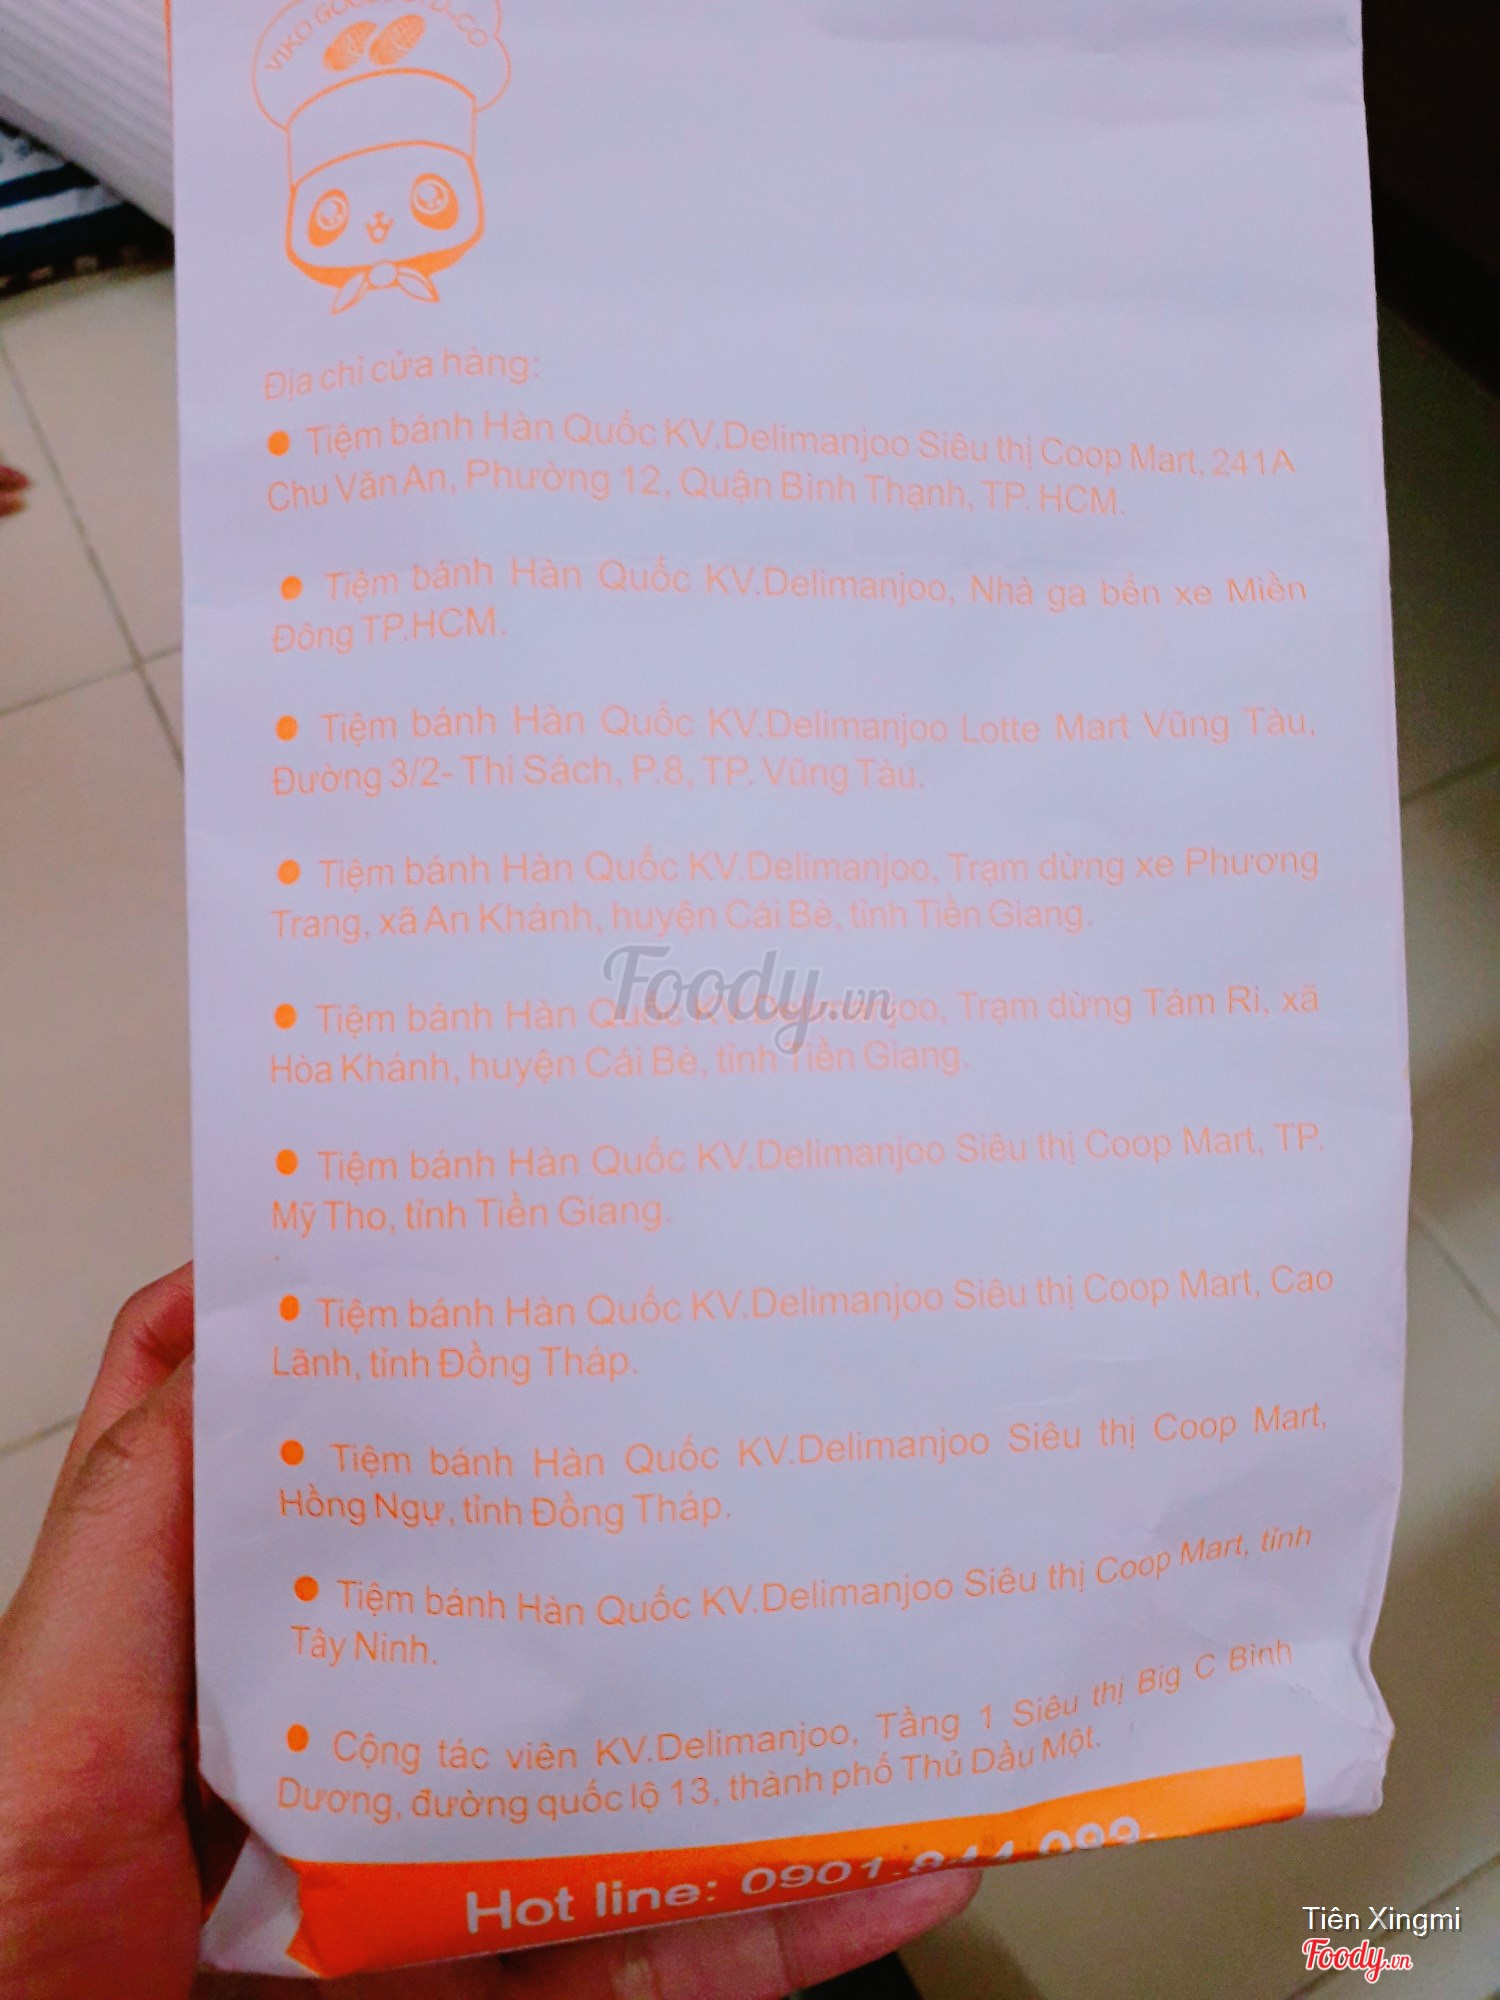 VIKO
Địa chỉ cửa hàng:
● Tiệm bánh Hàn Quốc KV.Delimanjoo Siêu thị Coop Mart, 241A
Chu Văn An, Phường 12, Quận Bình Thạnh, TP. HCM.
● Tiệm bánh Hàn Quốc KV.Delimanjoo, Nhà ga bến xe Miền
Đông TP.HCM.
● Tiệm bánh Hàn Quốc KV.Delimanjoo Lotte Mart Vũng Tàu,
Đường 3/2- Thi Sách, P.8, TP. Vũng Tàu.
● Tiệm bánh Hàn Quốc KV.Delimanjoo, Trạm dừng xe Phương
Trang, xã An Khánh, huyện Cái Bè, tỉnh Tiền Giang.
● Tiệm bánh Hàn Quốc KV.Delimanjoo, Trạm dừng Tám Ri, xã
Hòa Khánh, huyện Cái Bè, tỉnh Tiền Giang.
Foody.vn
● Tiệm bánh Hàn Quốc KV.Delimanjoo Siêu thị Coop Mart, TP.
Mỹ Tho, tỉnh Tiền Giang.
● Tiệm bánh Hàn Quốc KV.Delimanjoo Siêu thị Coop Mart, Cao
Lãnh, tỉnh Đồng Tháp.
● Tiệm bánh Hàn Quốc KV.Delimanjoo Siêu thị Coop Mart,
Hồng Ngự, tỉnh Đồng Tháp.
● Tiệm bánh Hàn Quốc KV.Delimanjoo Siêu thị Coop Mart, tỉnh
Tây Ninh.
● Cộng tác viên KV.Delimanjoo, Tầng 1 Siêu thị Big C Bình
Dương, đường quốc lộ 13, thành phố Thủ Dầu Một.
Hot line: 0901.844.
Tiên Xingmi
Foody.vn